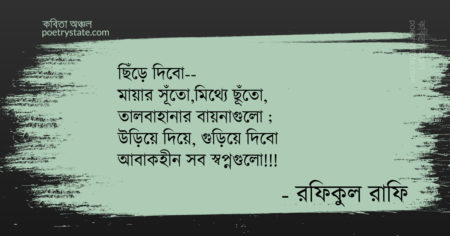 কবিতা অঞ্চল
poetrystate.com
ছিঁড়ে দিবো--
মায়ার সূঁতো,মিথ্যে ছূঁতো,
তালবাহানার বায়নাগুলো ;
উড়িয়ে দিয়ে, গুড়িয়ে দিবো
আবাকহীন সব স্বপ্নগুলো!!!
- রফিকুল রাফি